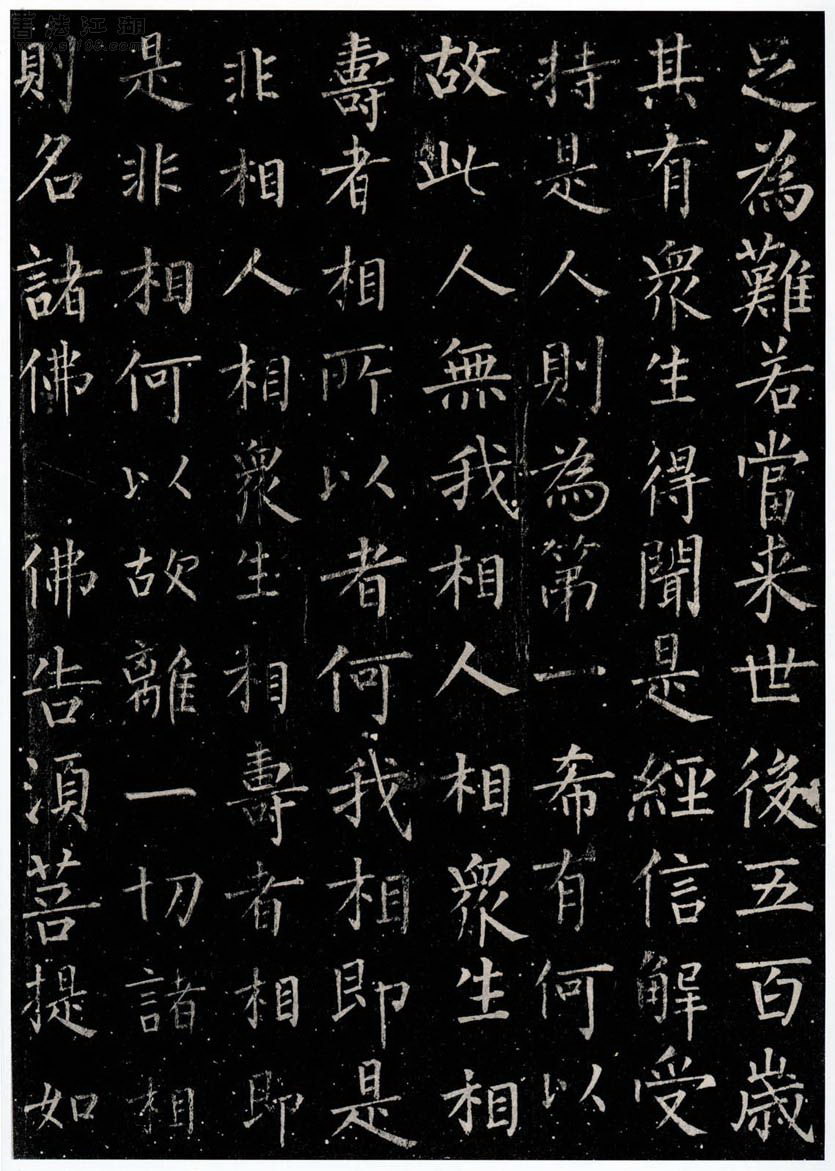 足為難若當来世後五百歲
其有衆生得聞是經信解受
持是人則為第一希有何以
故此人無我相人相衆生相
壽者相所以者何我相即是
非相人相衆生相壽者相即
是非相何以故離一切諸相
則名諸佛　佛告須菩提如
書法江湖
www.sf108.com